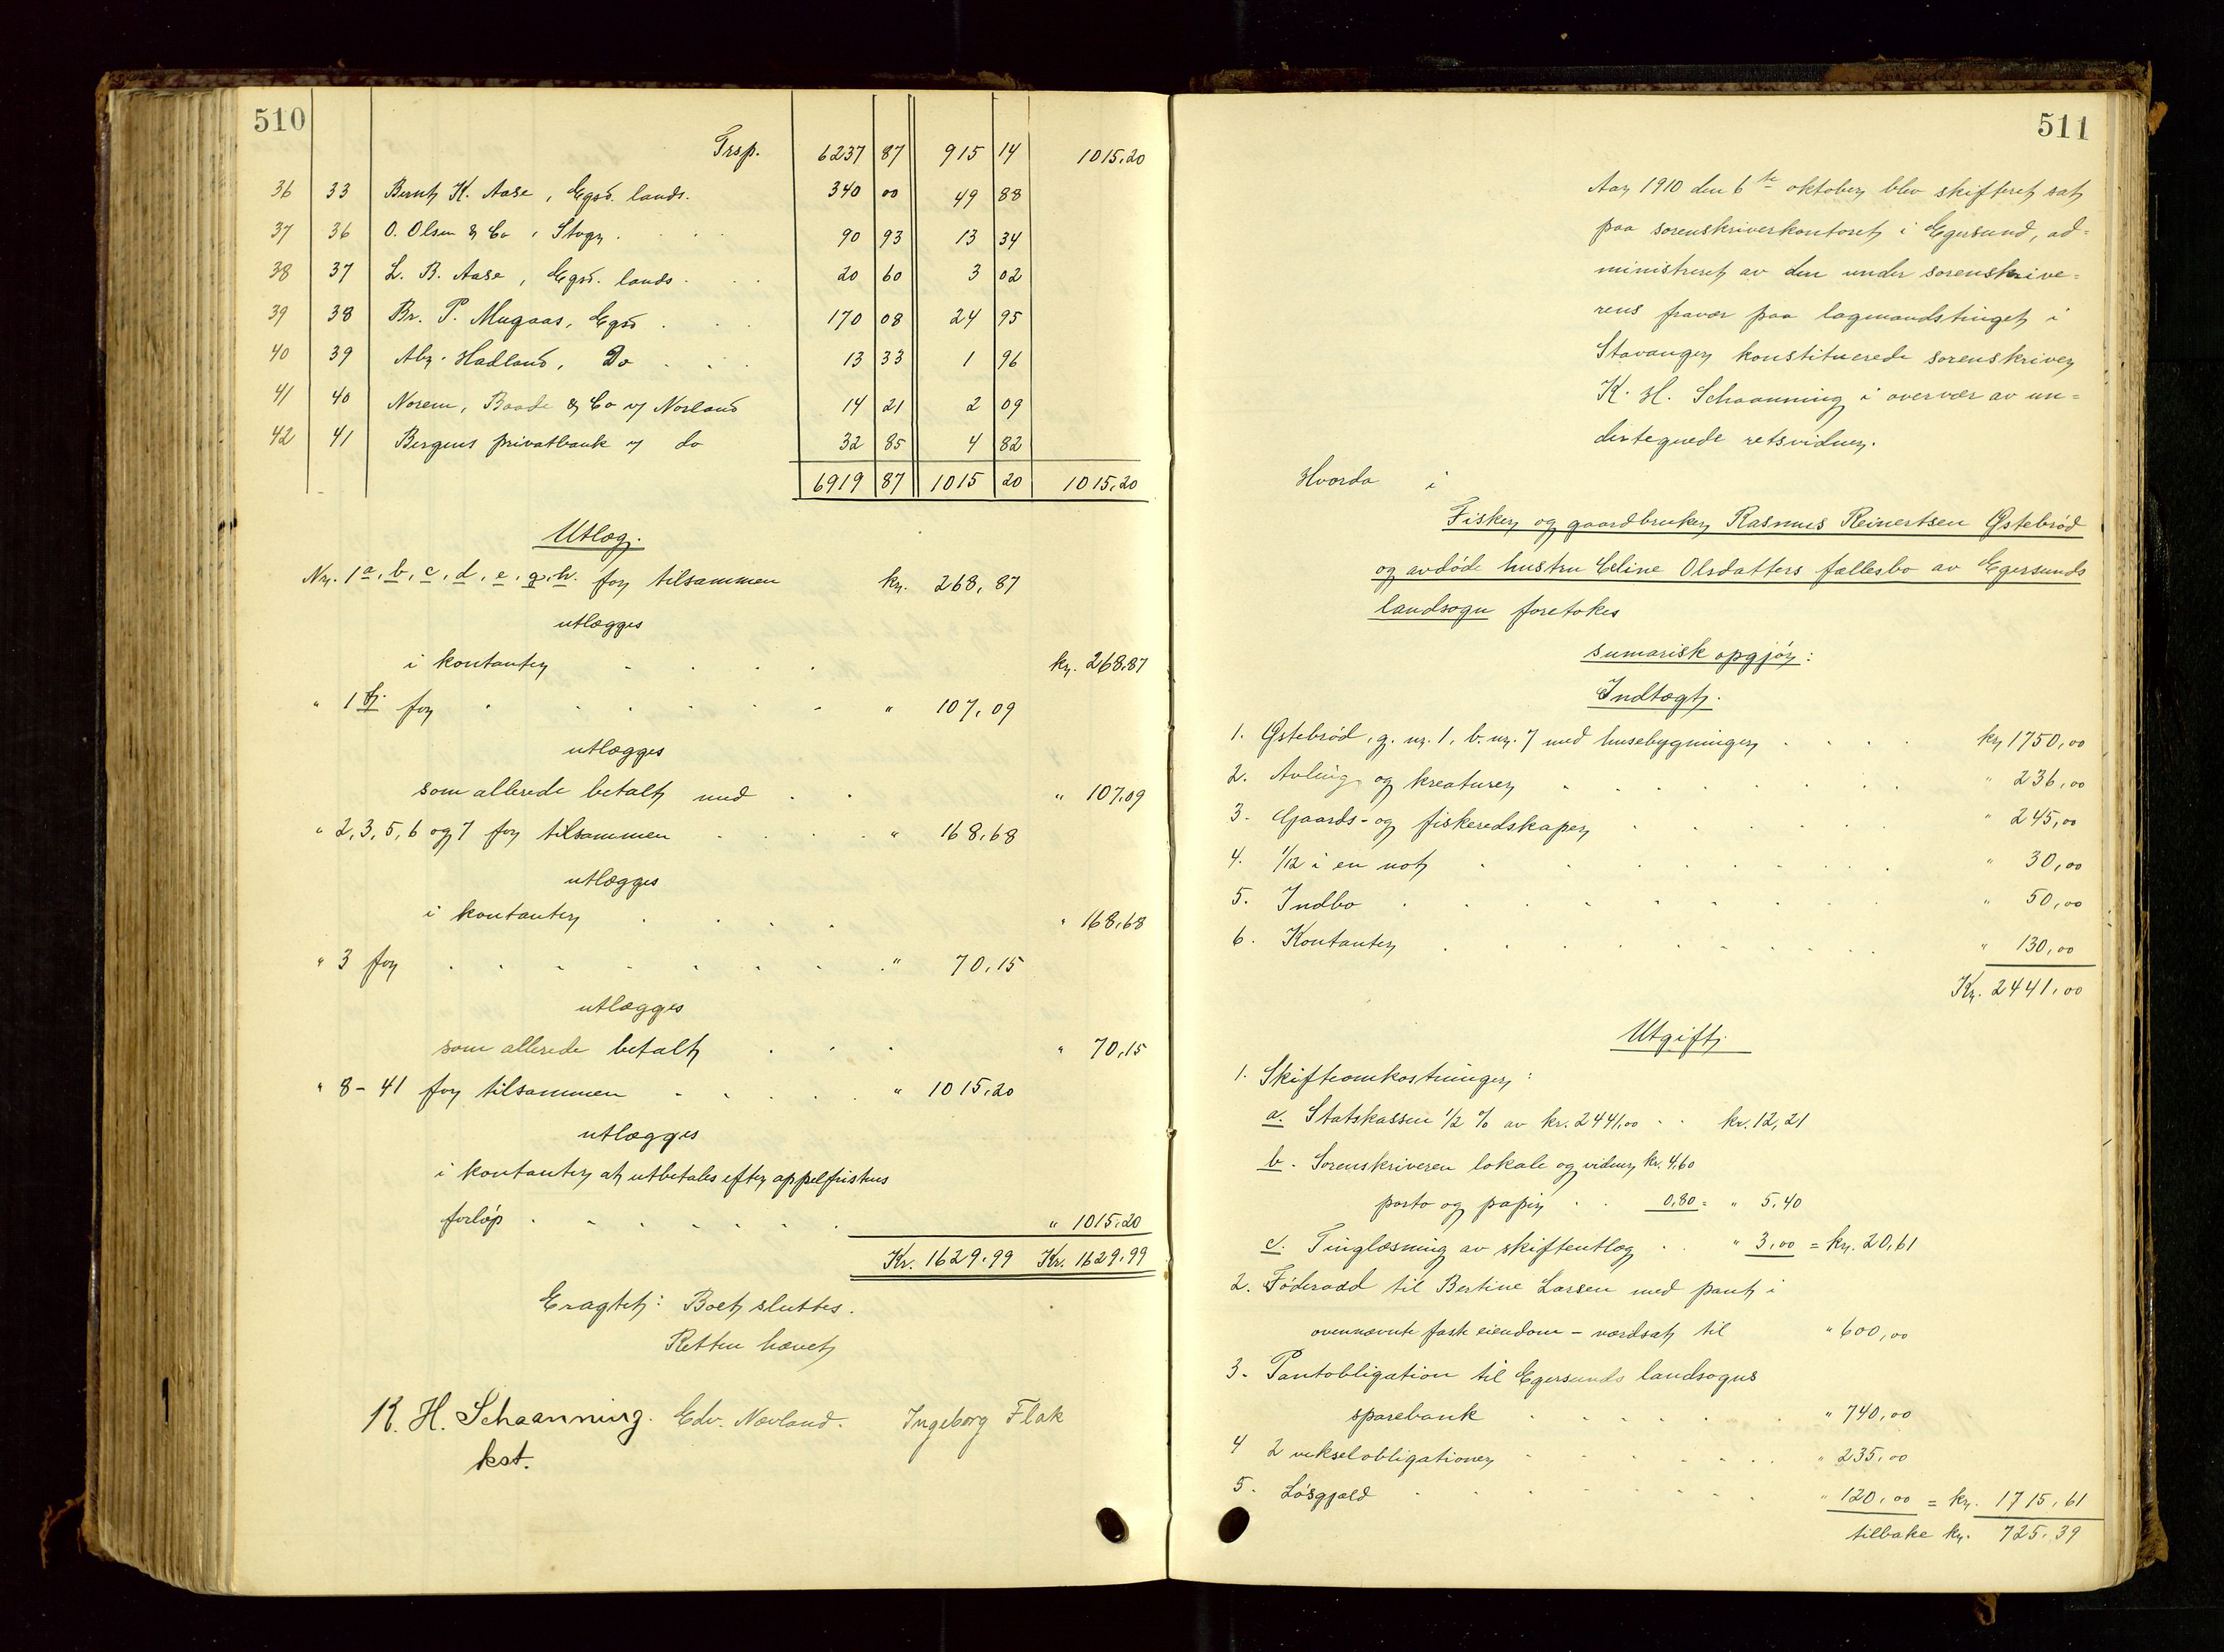 510
Trsp. 6237 87 915 14 1015,20
36 33 Bernt K. Aase, Egsd. lands. 340 00 49 88
37 36 O. Olsen & Co, Stvgr. 90 93 13 34
38 37 L. B. Aase, Egsd. lands. 20 60 3 02
39 38 Br. P. Mugaas, Egsd 170 08 24 95
40 39 Abr. Hadland, Do 13 33 1 96
41 40 Norem, Baade & Co v/ Norland 14 21 2 09
42 41 Bergens privatbank v/ do 32 85 4 82
6919 87 1015 20 1015,20
Utlæg.
Nr. 1 a, b, c, d, e, g, h. for tilsammen kr. 268,87
utlægges
i kontanter kr. 268,87
" 1 f. for " 107,09
utlægges
som allerede betalt med " 107,09
" 2, 3, 5, 6 og 7 for tilsammen " 168,68
utlægges
i kontanter " 168,68
" 3 for " 70,15
utlægges
som allerede betalt " 70,15
" 8 – 41 for tilsammen " 1015,20
utlægges
i kontanter at utbetales efter appelfristens
forløp " 1015,20
Kr. 1629,99 Kr. 1629,99
Eragtet: Boet sluttes.
Retten hævet
K. H. Schaanning. Edv. Nævland. Ingeborg Flak
kst.
511
Aar 1910 den 6te oktober blev skifteret sat
paa sorenskriverkontoret i Egersund, ad=
ministreret av den under sorenskrive=
rens fravær paa lagmandstinget i
Stavanger konstituerede sorenskriver
K. H. Schaanning i overvær av un=
dertegnede retsvidner.
Hvorda i
Fisker og gaardbruker Rasmus Reinertsen Østebrød
og avdøde hustru Eline Olsdatters fællesbo av Egersunds
landsogn foretokes
sumarisk opgjør:
Indtægt.
1. Østebrød, g. nr. 1, b. nr. 7 med husebygninger kr 1750,00
2. Avling og kreaturer " 236,00
3. Gaards- og fiskeredskaper " 245,00
4. 1/12 i en not " 30,00
5. Indbo " 50,00
6. Kontanter " 130,00
Kr. 2441,00
Utgift.
1. Skifteomkostninger:
a. Statskassen 1/2 % av kr. 2441,00 kr. 12,21
b. Sorenskriveren lokale og vidner kr. 4,60
porto og papir 0,80 = " 5,40
c. Tinglæsning av skifteutlæg " 3,00 = kr. 20,61
2. Føderaad til Bertine Larsen med pant i
ovennævnte faste eiendom – værdsat til " 600,00
3. Pantobligation til Egersunds landsogns
sparebank " 740,00
4 2 vekselobligationer " 235,00
5. Løsgjæld " 120,00 = kr. 1715,61
tilbake kr. 725,39